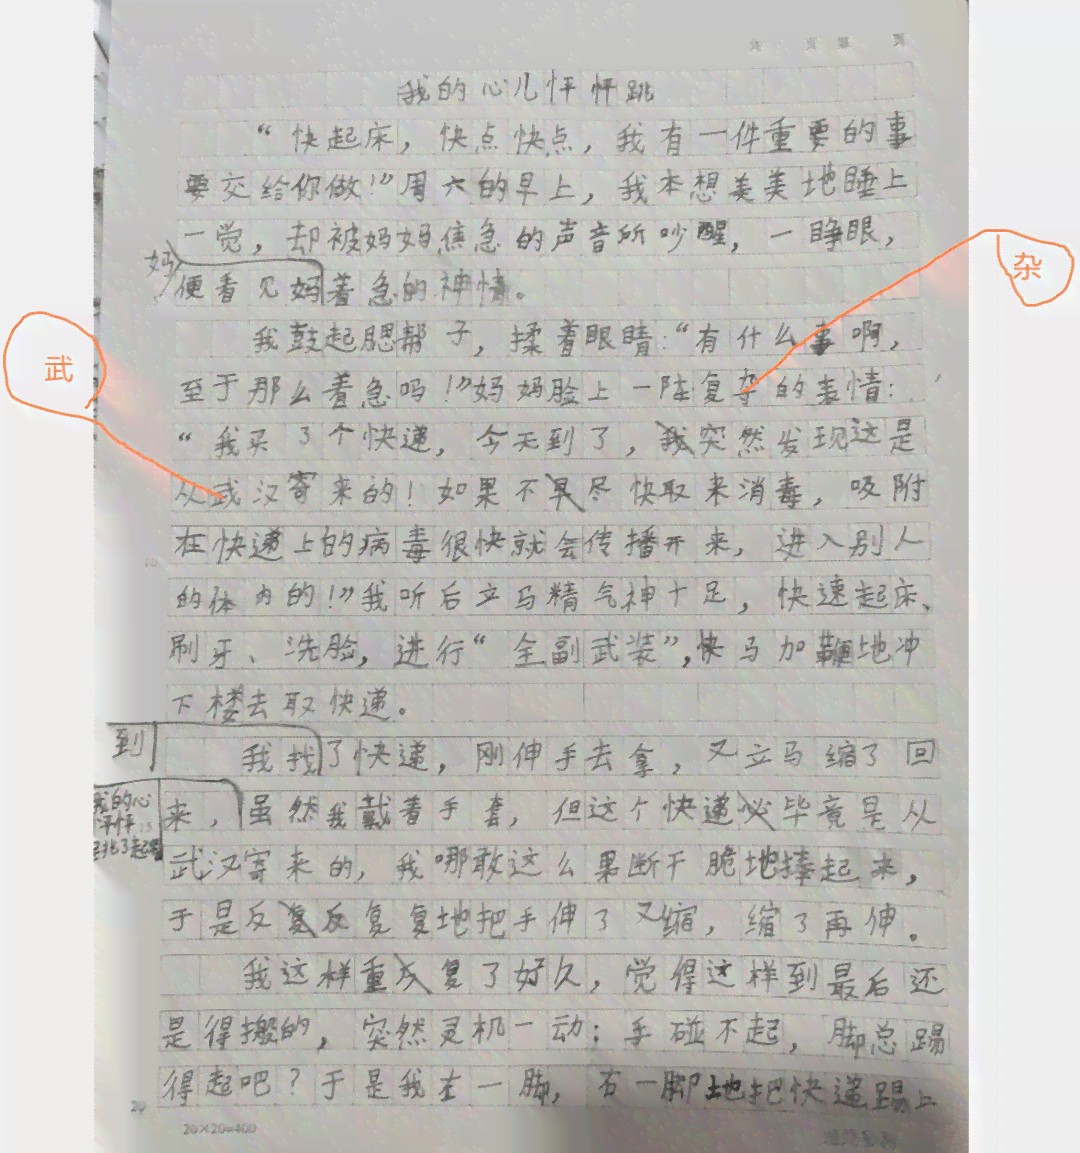 我的心儿怦怦跳
“快起床，快点快点，我有一件重要的事
要交给你做！”周六的早上，我本想美美地睡上
一觉，却被妈妈焦急的声音所吵醒，一睁眼，
妈
便看见妈着急的神情。
杂
我鼓起腮帮子，揉着眼睛：“有什么事啊，
武
至于那么着急吗！”妈妈脸上一阵复杂的表情：
“我买了个快递，今天到了，我突然发现这是
从武汉寄来的！如果不早尽快取来消毒，吸附
在快递上的病毒很快就会传播开来，进入别人
的体内的！”我听后立马精气神十足，快速起床、
刷牙、洗脸，进行“全副武装”，快马加鞭地冲
下楼去取快递。
到
我找了快递，刚伸手去拿，又立马缩了回
我的心
怦怦
跳了起
来，虽然我戴着手套，但这个快递必毕竟是从
武汉寄来的，我哪敢这么果断干脆地捧起来，
于是反复反复复地把手伸了又缩，缩了再伸。
我这样重反复了好久，觉得这样到最后还
是得搬的，突然灵机一动：手碰不起，脚总踢
得起吧？于是我左一脚，右一脚地把快递踢上
20
20×20=400